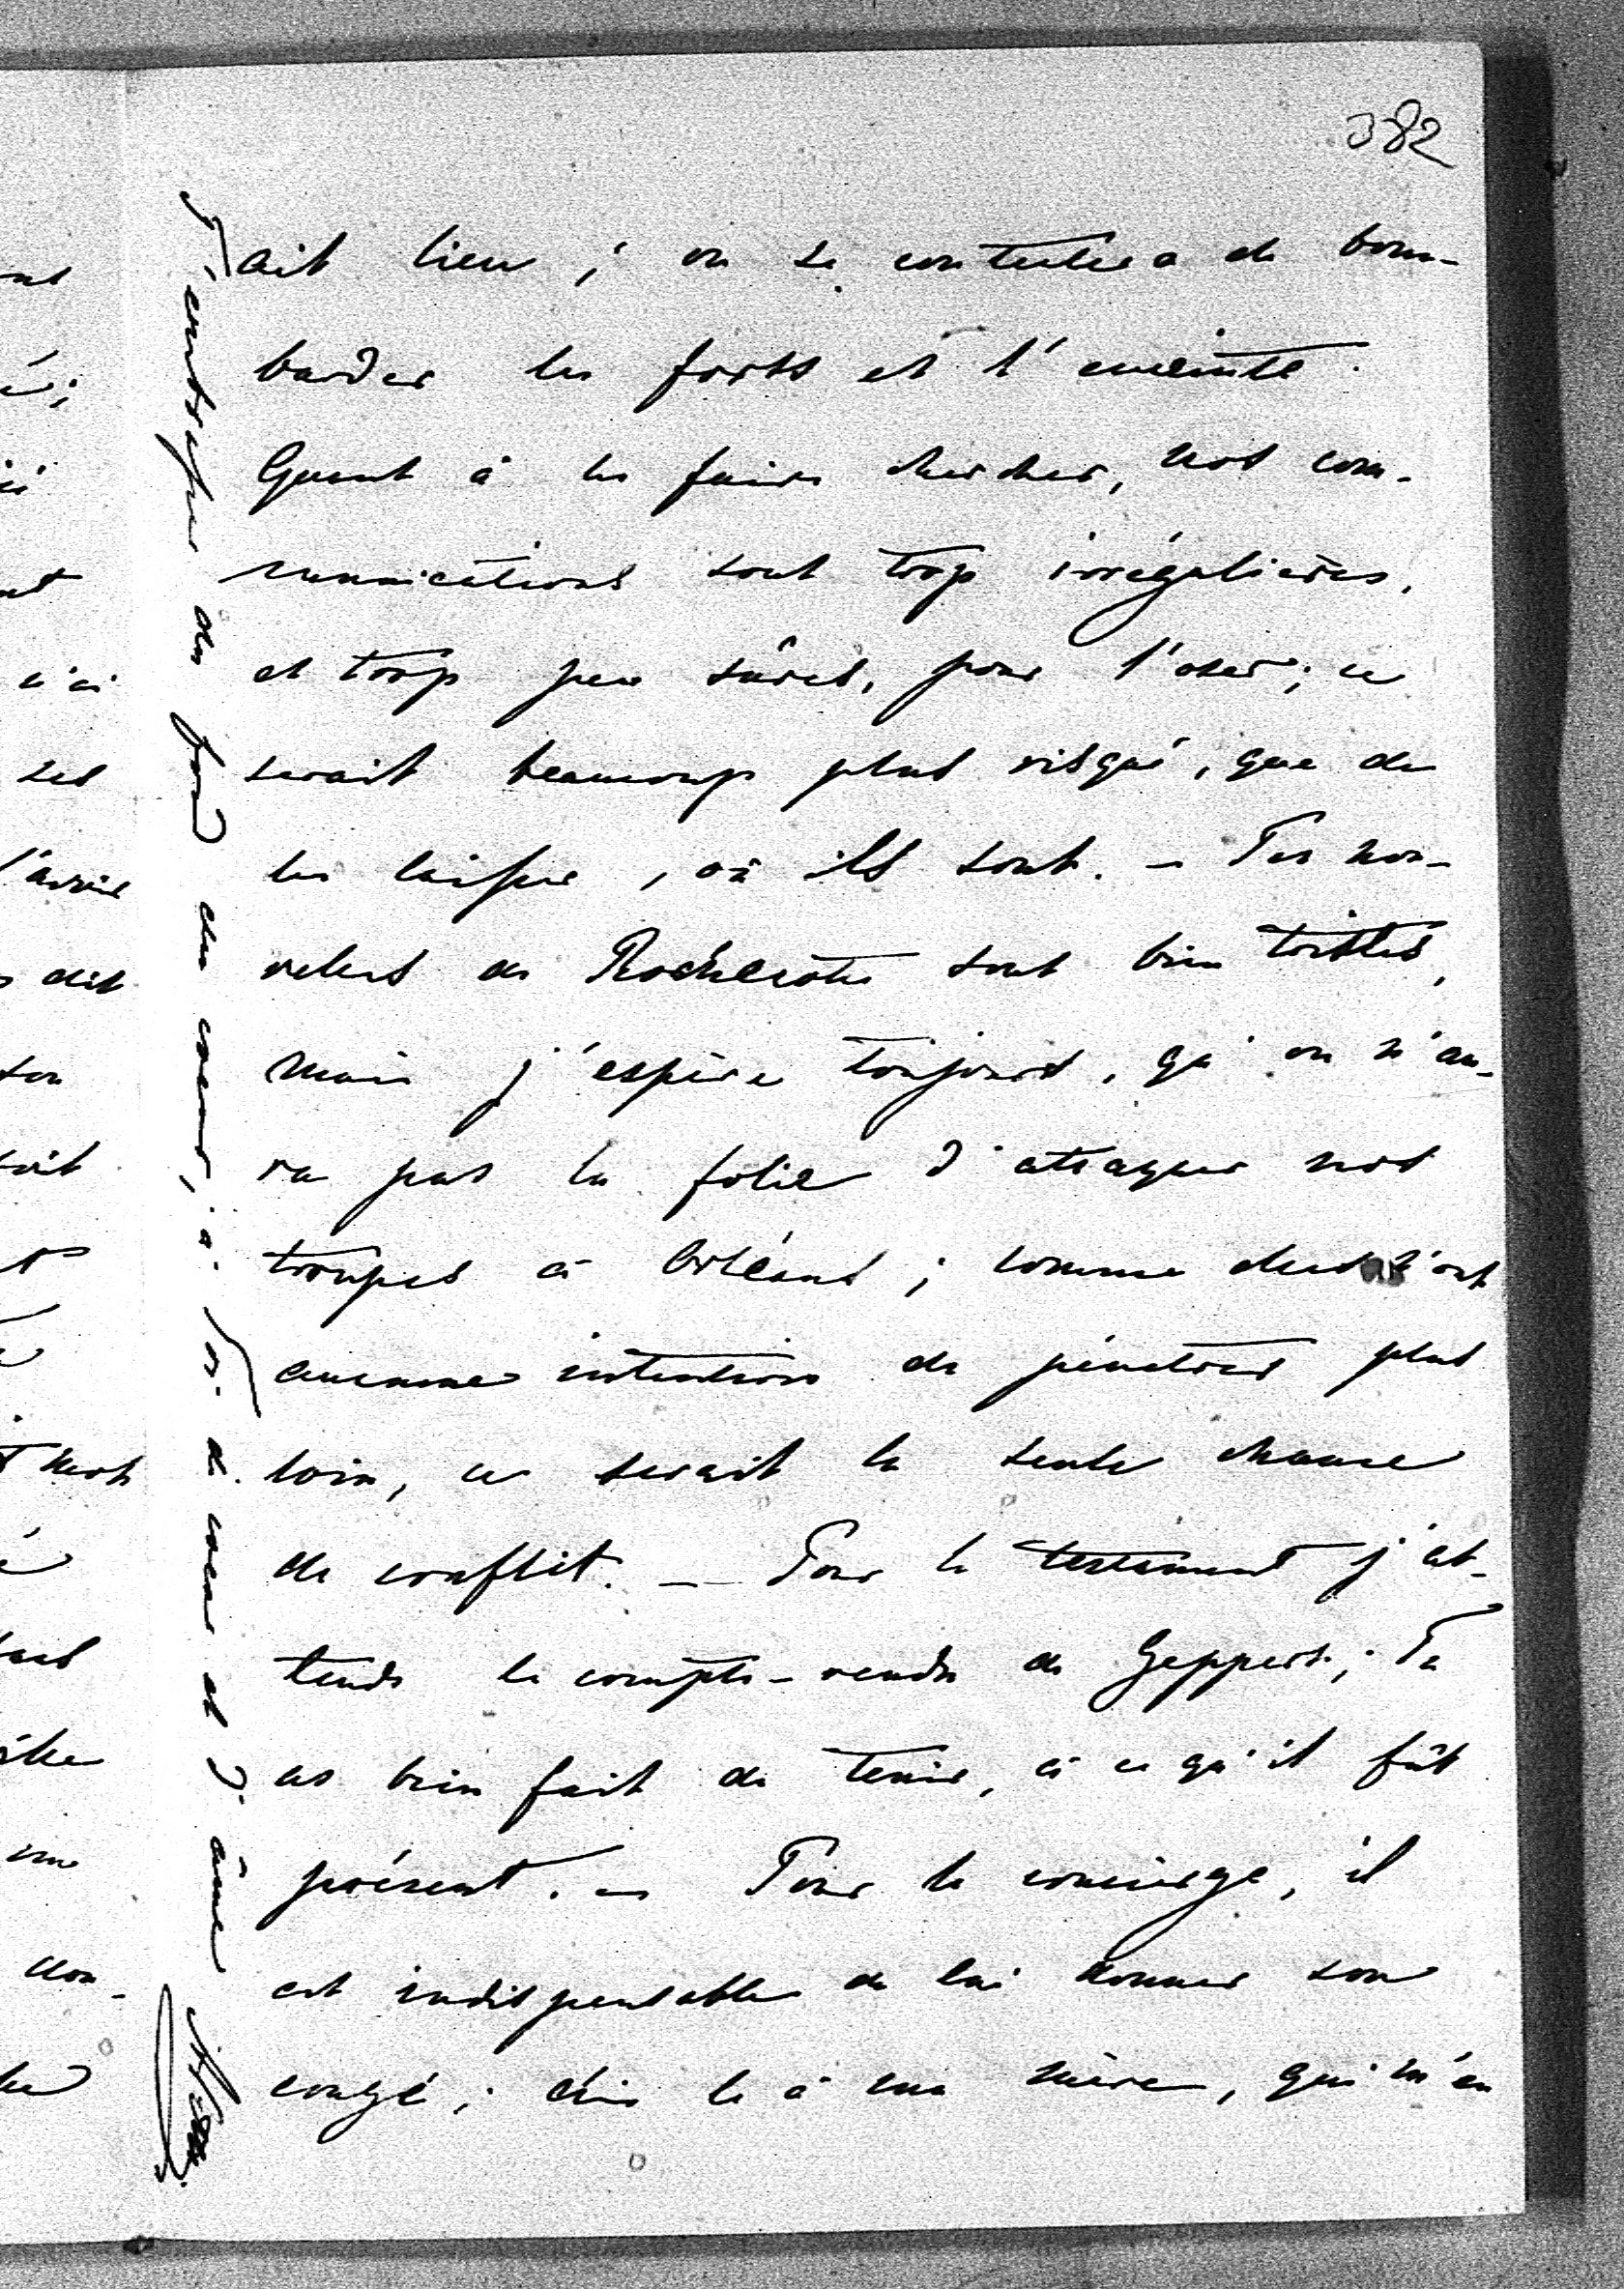 382
ait lieu ; on se contentera de bom-
barder les forts et l'enceinte.
Quant à les faire chercher, nos com-
munications sont trop irrégulières,
et trop peu sûres, pour l'oser ; ce
serait beaucoup plus risqué, que de
les laisser, où ils sont. — Tes nou-
velles de Rochecotte sont bien tristes,
mais j'espère toujours, qu'on n'au-
ra pas la folie d'attaquer nos
troupes à Orléans ; comme elles n'ont
aucune intention de pénétrer plus
loin, ce serait la seule chance
de conflit. — Pour le testament j'at-
tends le compte-rendu de Geppert ; Tu
as bien fait de tenir, à ce qu'il fût
présent. — Pour le concierge, il
est indispensable de lui donner son
congé ; dis le à ma mère, qui m'en
T'embrasse du fond du coeur, à T. de coeur et d'âme